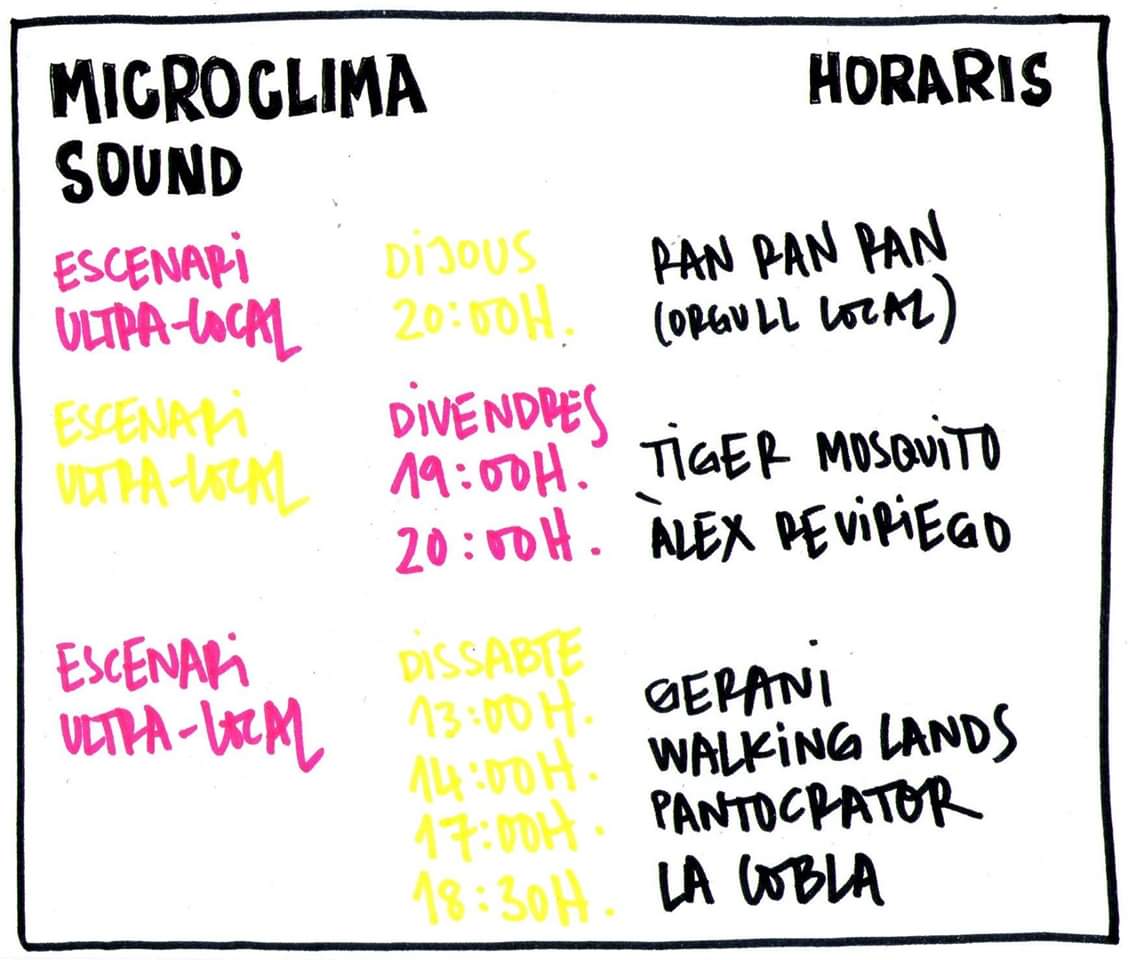 MICROCLIMA
SOUND
HORARIS
ESCENARI
ULTRA-LOCAL
DIJOUS
20:00H.
RAN RAN RAN
(ORGULL LOCAL)
ESCENARI
ULTRA-LOCAL
DIVENDRES
19:00H. TIGER MOSQUITO
20:00H. ÀLEX REVIRIEGO
ESCENARI
ULTRA-LOCAL
DISSABTE
13:00H. GERANI
14:00H. WALKING LANDS
17:00H. PANTOCRATOR
18:30H. LA COBLA